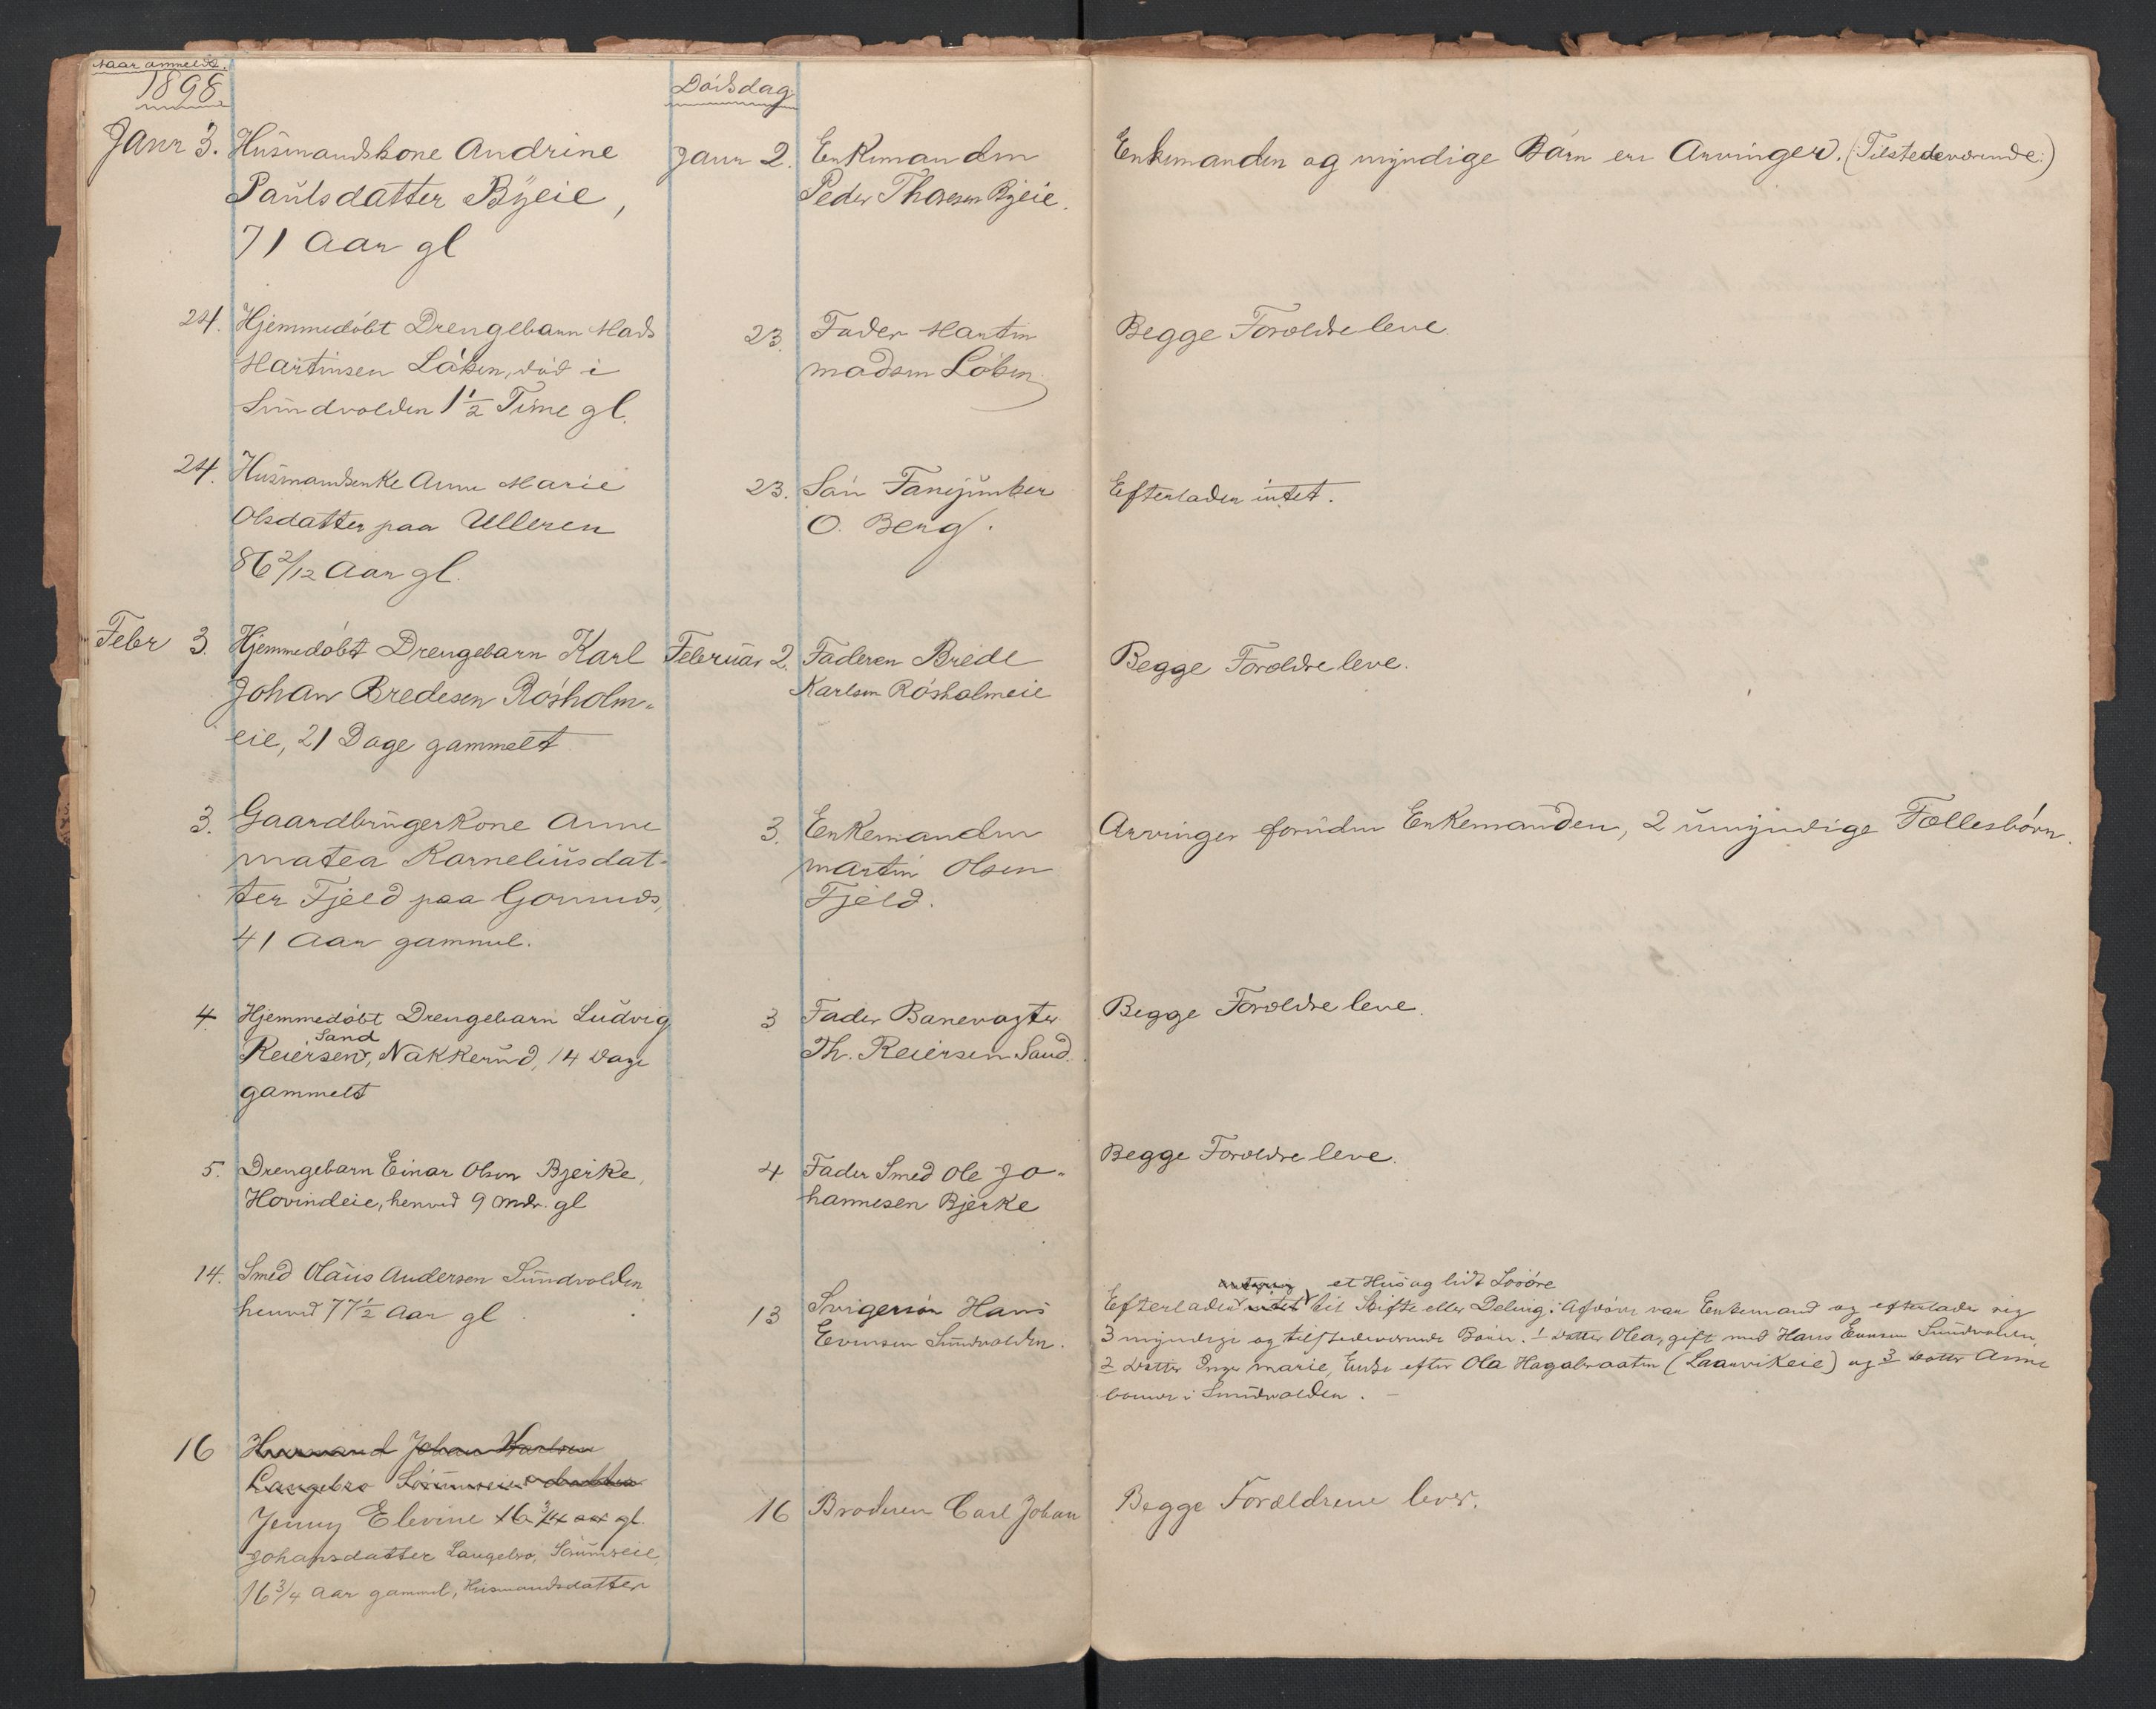 Naar anmeldt.
1898.
Dödsdag
Janr 3. Husmandskone Andrine
Paulsdatter Byeie,
71 Aar gl
Janr 2. Enkemanden
Peder Thoresen Byeie.
Enkemanden og myndige Börn er Arvinger. (:Tilstedeværende:)
24. Hjemmedöbt Drengebarn Mads
Martinsen Löken, död i
Sundvolden 1 1/2 Time gl.
23. Fader Martin
Madsen Löken
Begge Forældre leve.
24. Husmandsenke Anne Marie
Olsdatter paa Ulleren
86 2/12 Aar gl.
23. Sön Fanejunker
O. Berg.
Efterlader intet.
Febr 3. Hjemmedöbt Drengebarn Karl
Johan Bredesen Rösholm-
eie, 21 Dage gammelt
Februar 2. Faderen Brede
Karlsen Rösholmeie
Begge Forældre leve.
3. Gaardbrugerkone Anne
Matea Korneliusdat-
ter Fjeld paa Gomnæs,
41 Aar gammel.
3. Enkemanden
Martin Olsen
Fjeld.
Arvinger foruden Enkemanden, 2 umyndige Fællesbörn.
4. Hjemmedöbt Drengebarn Ludvig
Sand
Reiersen, Nakkerud, 14 Dage
gammelt
3 Fader Banevogter
Th. Reiersen Sand.
Begge Forældre leve.
5. Drengebarn Einar Olsen Bjerke,
Hovindeie, henved 9 Mdr. gl
4 Fader Smed Ole Jo-
hannesen Bjerke
Begge Forældre leve.
14. Smed Olaus Andersen Sundvolden
henved 77 1/2 Aar gl
13 Svigersön Hans
Evensen Sundvolden.
et Hus og lidt Lösöre
Efterlader intet til Skifte eller Deling. Afdöde var Enkemand og efterlader sig
3 myndige og tilstedeværende Börn. 1 Datter Olea, gift med Hans Evensen Sundvolden,
2 Datter Inger Marie, Enke efter Ola Hagabraaten (Laarvikeie) og 3 Datter Anne
boende i Sundvolden. -
16 Husmand Johan Karlsen
Langebro Sörumseie datter
Jenny Elevine 16 3/4 aar gl.
Johansdatter Langebro, Sörumseie,
16 3/4 Aar gammel, Husmandsdatter
16 Broderen Carl Johan
Begge Forældrene lever.